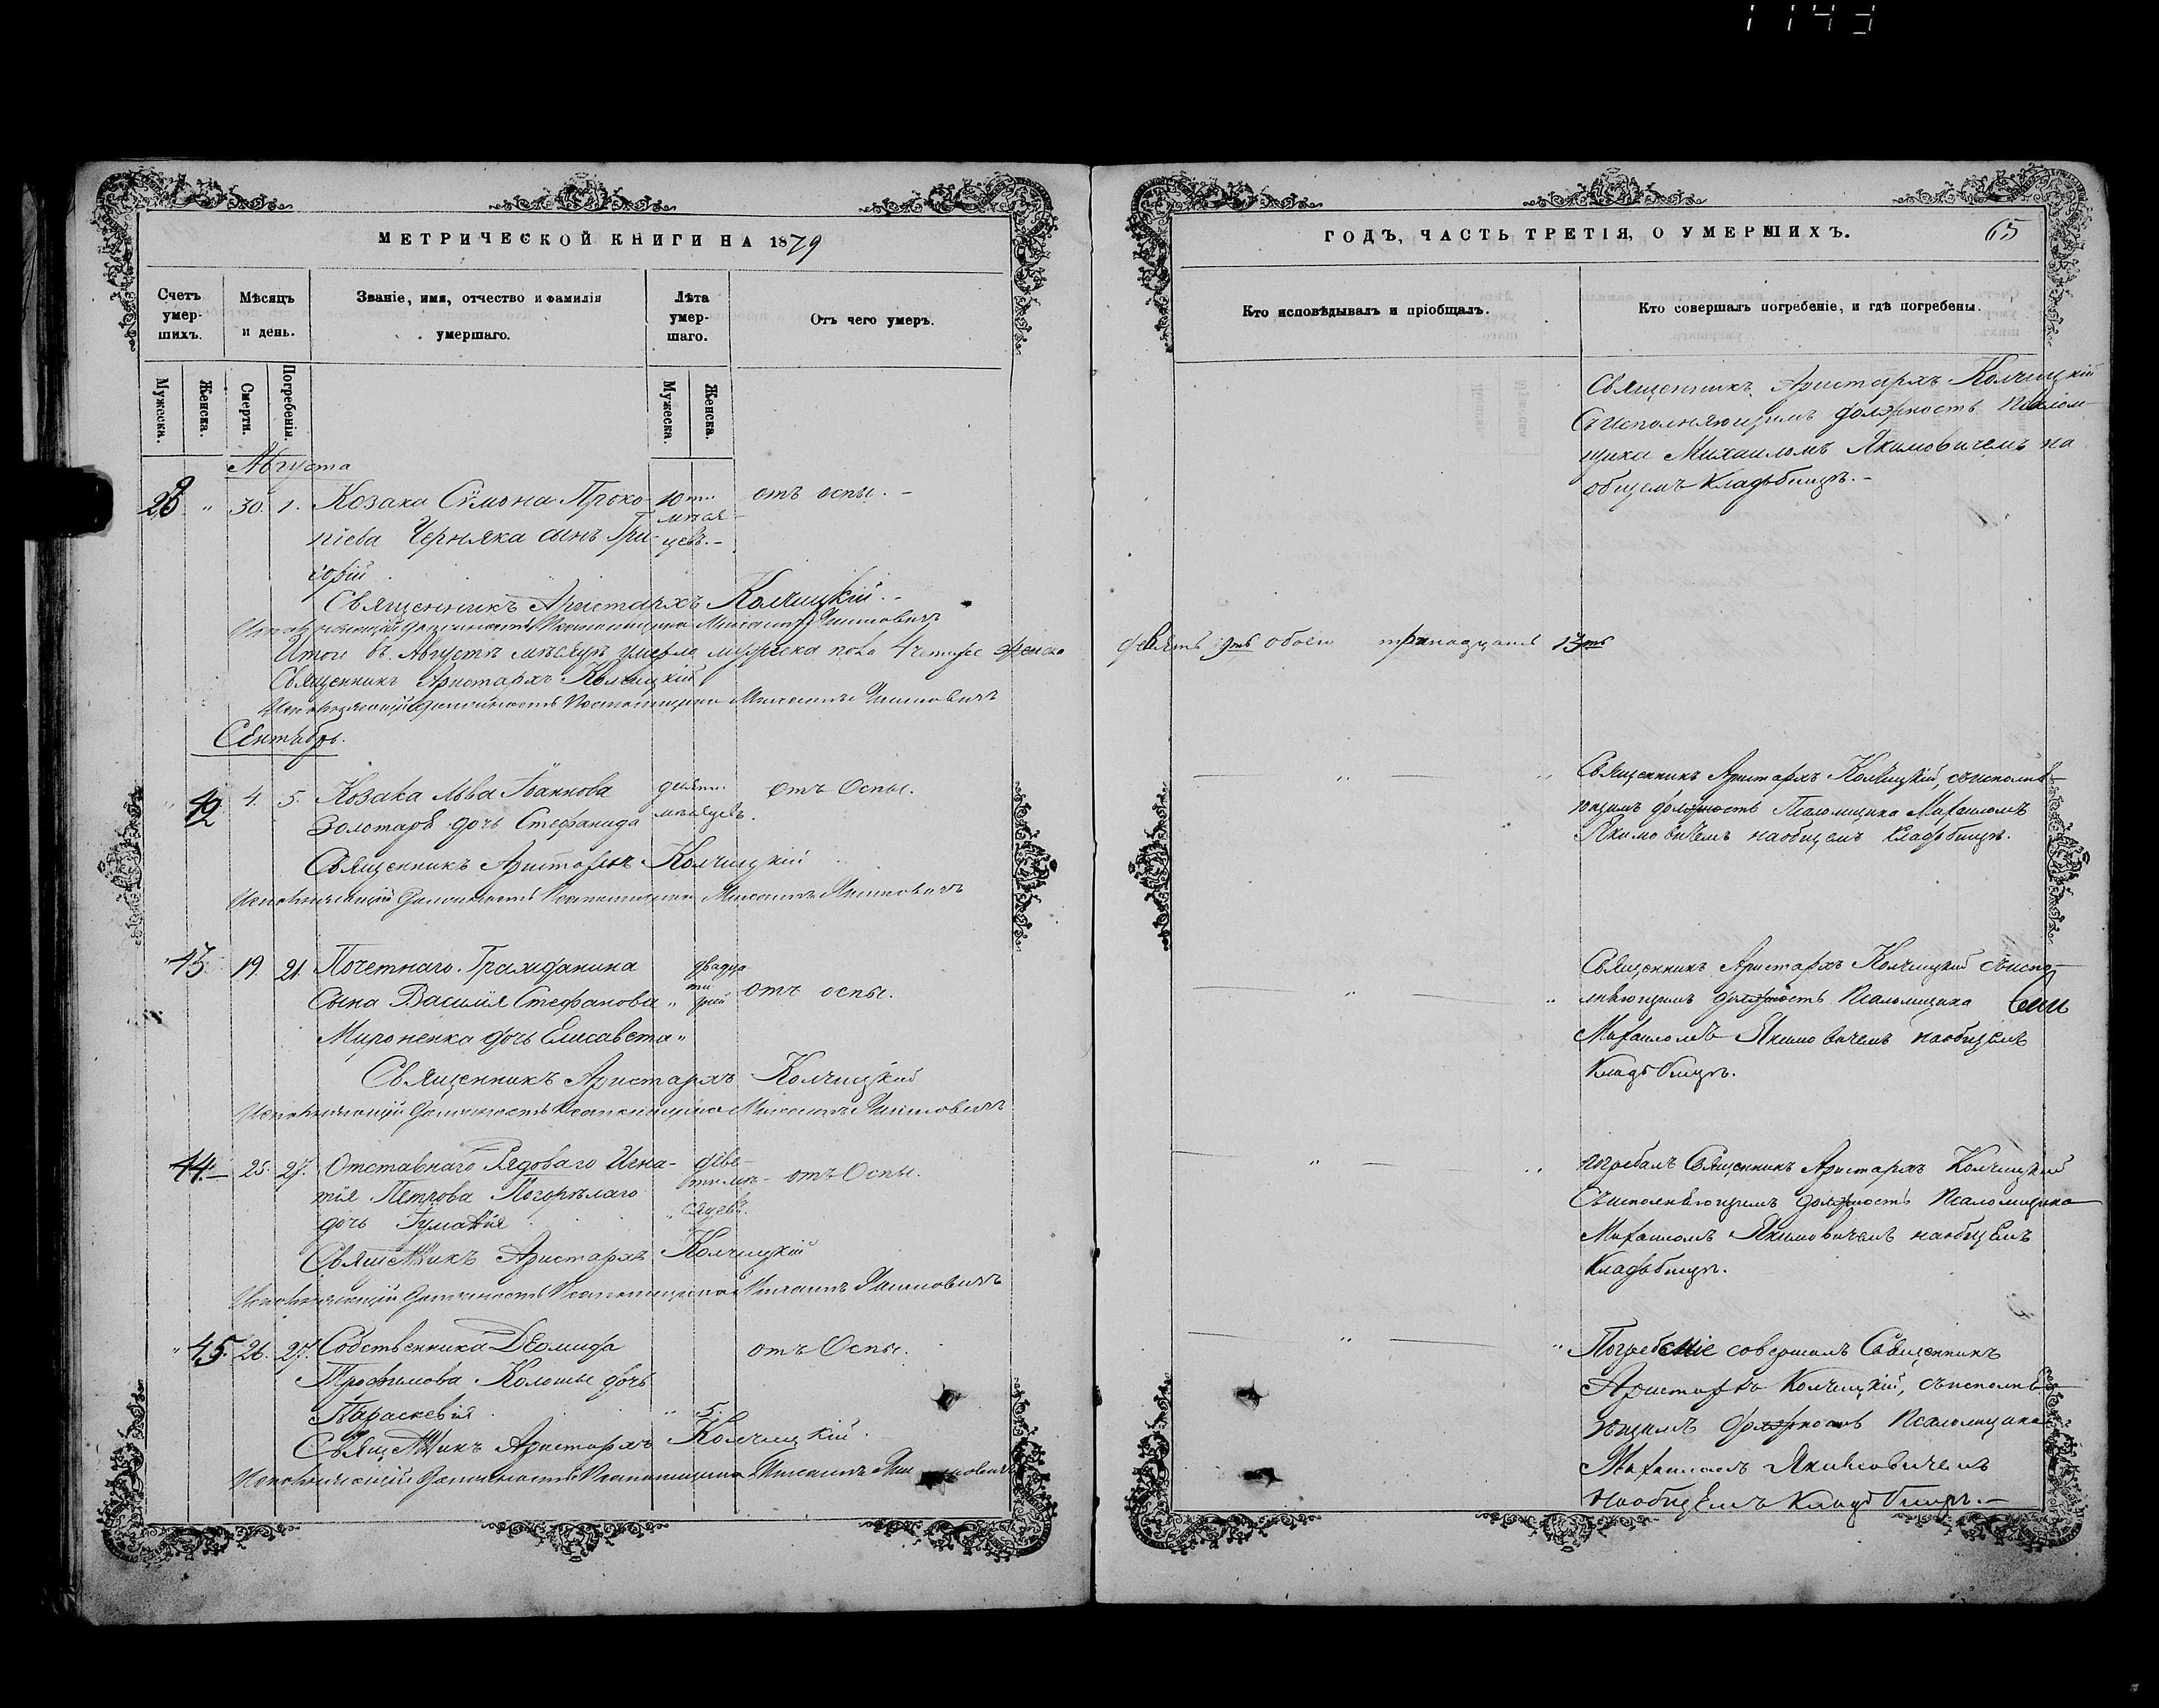 МЕТРИЧЕСКОЙ КНИГИ НА 1879
Счетъ умер-шихъ.
Мѣсяцъ и день.
Званіе, имя, отчество и фамилія умершаго.
Лѣта умер-шаго.
Отъ чего умеръ.
Мужеска.
Женска.
Смерти.
Погребенія.
Мужеска.
Женска.
Августа
30. 1. Козака Сѵмона Проко- 10ти отъ оспы. -
піева Черняка сынъ Гри- мѣся-
горій цевъ. -
Священникъ Аристархъ Колчицкій. -
Исполняющій должность Псаломщика Михаилъ Якимовичъ
Итого въ Августѣ мѣсяцѣ умерло мужеска пола 4 четыре женска
Священникъ Аристархъ Колчицкій
Исполняющій должность Псаломщика Михаилъ Якимовичъ
Сентябрь.
" 42 4. 5. Козака Льва Іоаннова девяти отъ Оспы.
Золотаря дочь Стефанида мѣсяцевъ.
Священникъ Аристархъ Колчицкій
Исполняющій должность Псаломщика Михаилъ Якимовичъ
" 43. 19. 21. Почетнаго Гражданина двадца
Сына Василія Стефанова " ти дней отъ оспы.
Мироненка дочь Елисавета "
Священникъ Аристархъ Колчицкій
Исполняющій должность Псаломщика Михаилъ Якимовичъ
44. 25. 27. Отставнаго Рядоваго Игна- девя-
тія Петрова Погорѣлаго ти мѣ- отъ Оспы.
дочь " сяцевъ.
Священникъ Аристархъ Колчицкій
Исполняющій должность Псаломщика Михаилъ Якимовичъ
" 45. 26. 27. Собственника Деомида отъ Оспы.
Трофимова дочь
Параскевія " 5.
Священникъ Аристархъ Колчицкій.
Исполняющій должность Псаломщика Михаилъ Якимовичъ
ГОДЪ, ЧАСТЬ ТРЕТІЯ, О УМЕРШИХЪ.
65
Кто исповѣдывалъ и пріобщалъ.
Кто совершалъ погребеніе, и гдѣ погребены.
Священникъ Аристархъ Колчицкій
Съ исполняющимъ должность Псалом-
щика Михаиломъ Якимовичемъ на
общемъ Кладбищѣ. -
девять 9ть обоего тринадцать 13ть
" " Священникъ Аристархъ Колчицкій, съ исполня-
ющимъ должность Псаломщика Михаиломъ
Якимовичемъ на общемъ кладбищѣ.
" " Священникъ Аристархъ Колчицкій съ испо-
лняющимъ должность Псаломщика
Михаиломъ Якимовичемъ на общемъ
Кладбищѣ.
" " погребалъ Священникъ Аристархъ Колчицкій
Съ исполняющимъ должность Псаломщика
Михаиломъ Якимовичемъ на общемъ
Кладбищѣ.
" " Погребеніе совершалъ Священникъ
Аристархъ Колчицкій, съ исполня-
ющимъ должность Псаломщика
Михаиломъ Якимовичемъ
на общемъ кладбищѣ. -